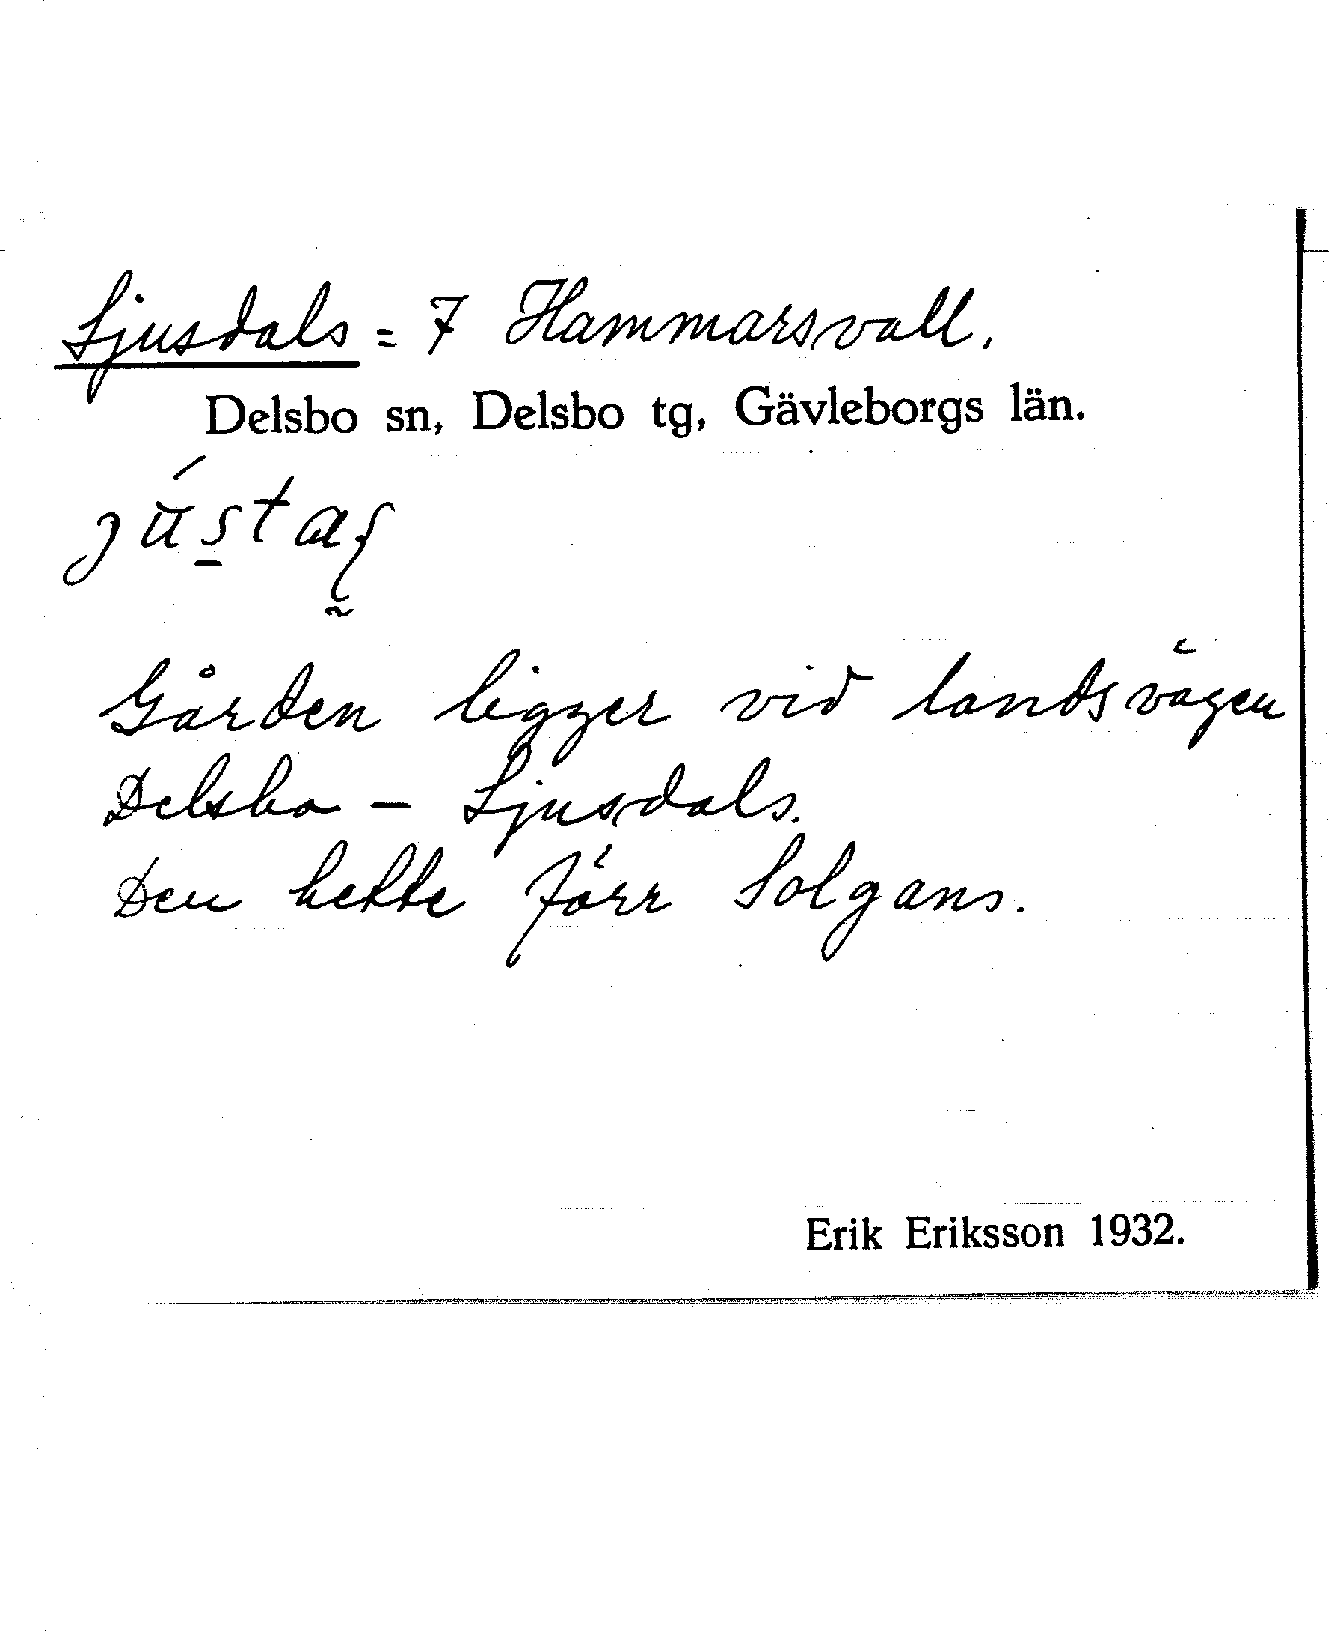 Ljusdals = 7 Hammarsvall.
Delsbo sn, Delsbo tg, Gävleborgs län.
Gården ligger vid landsvägen
Delsbo – Ljusdals.
Den hette förr Solgans.
Erik Eriksson 1932.